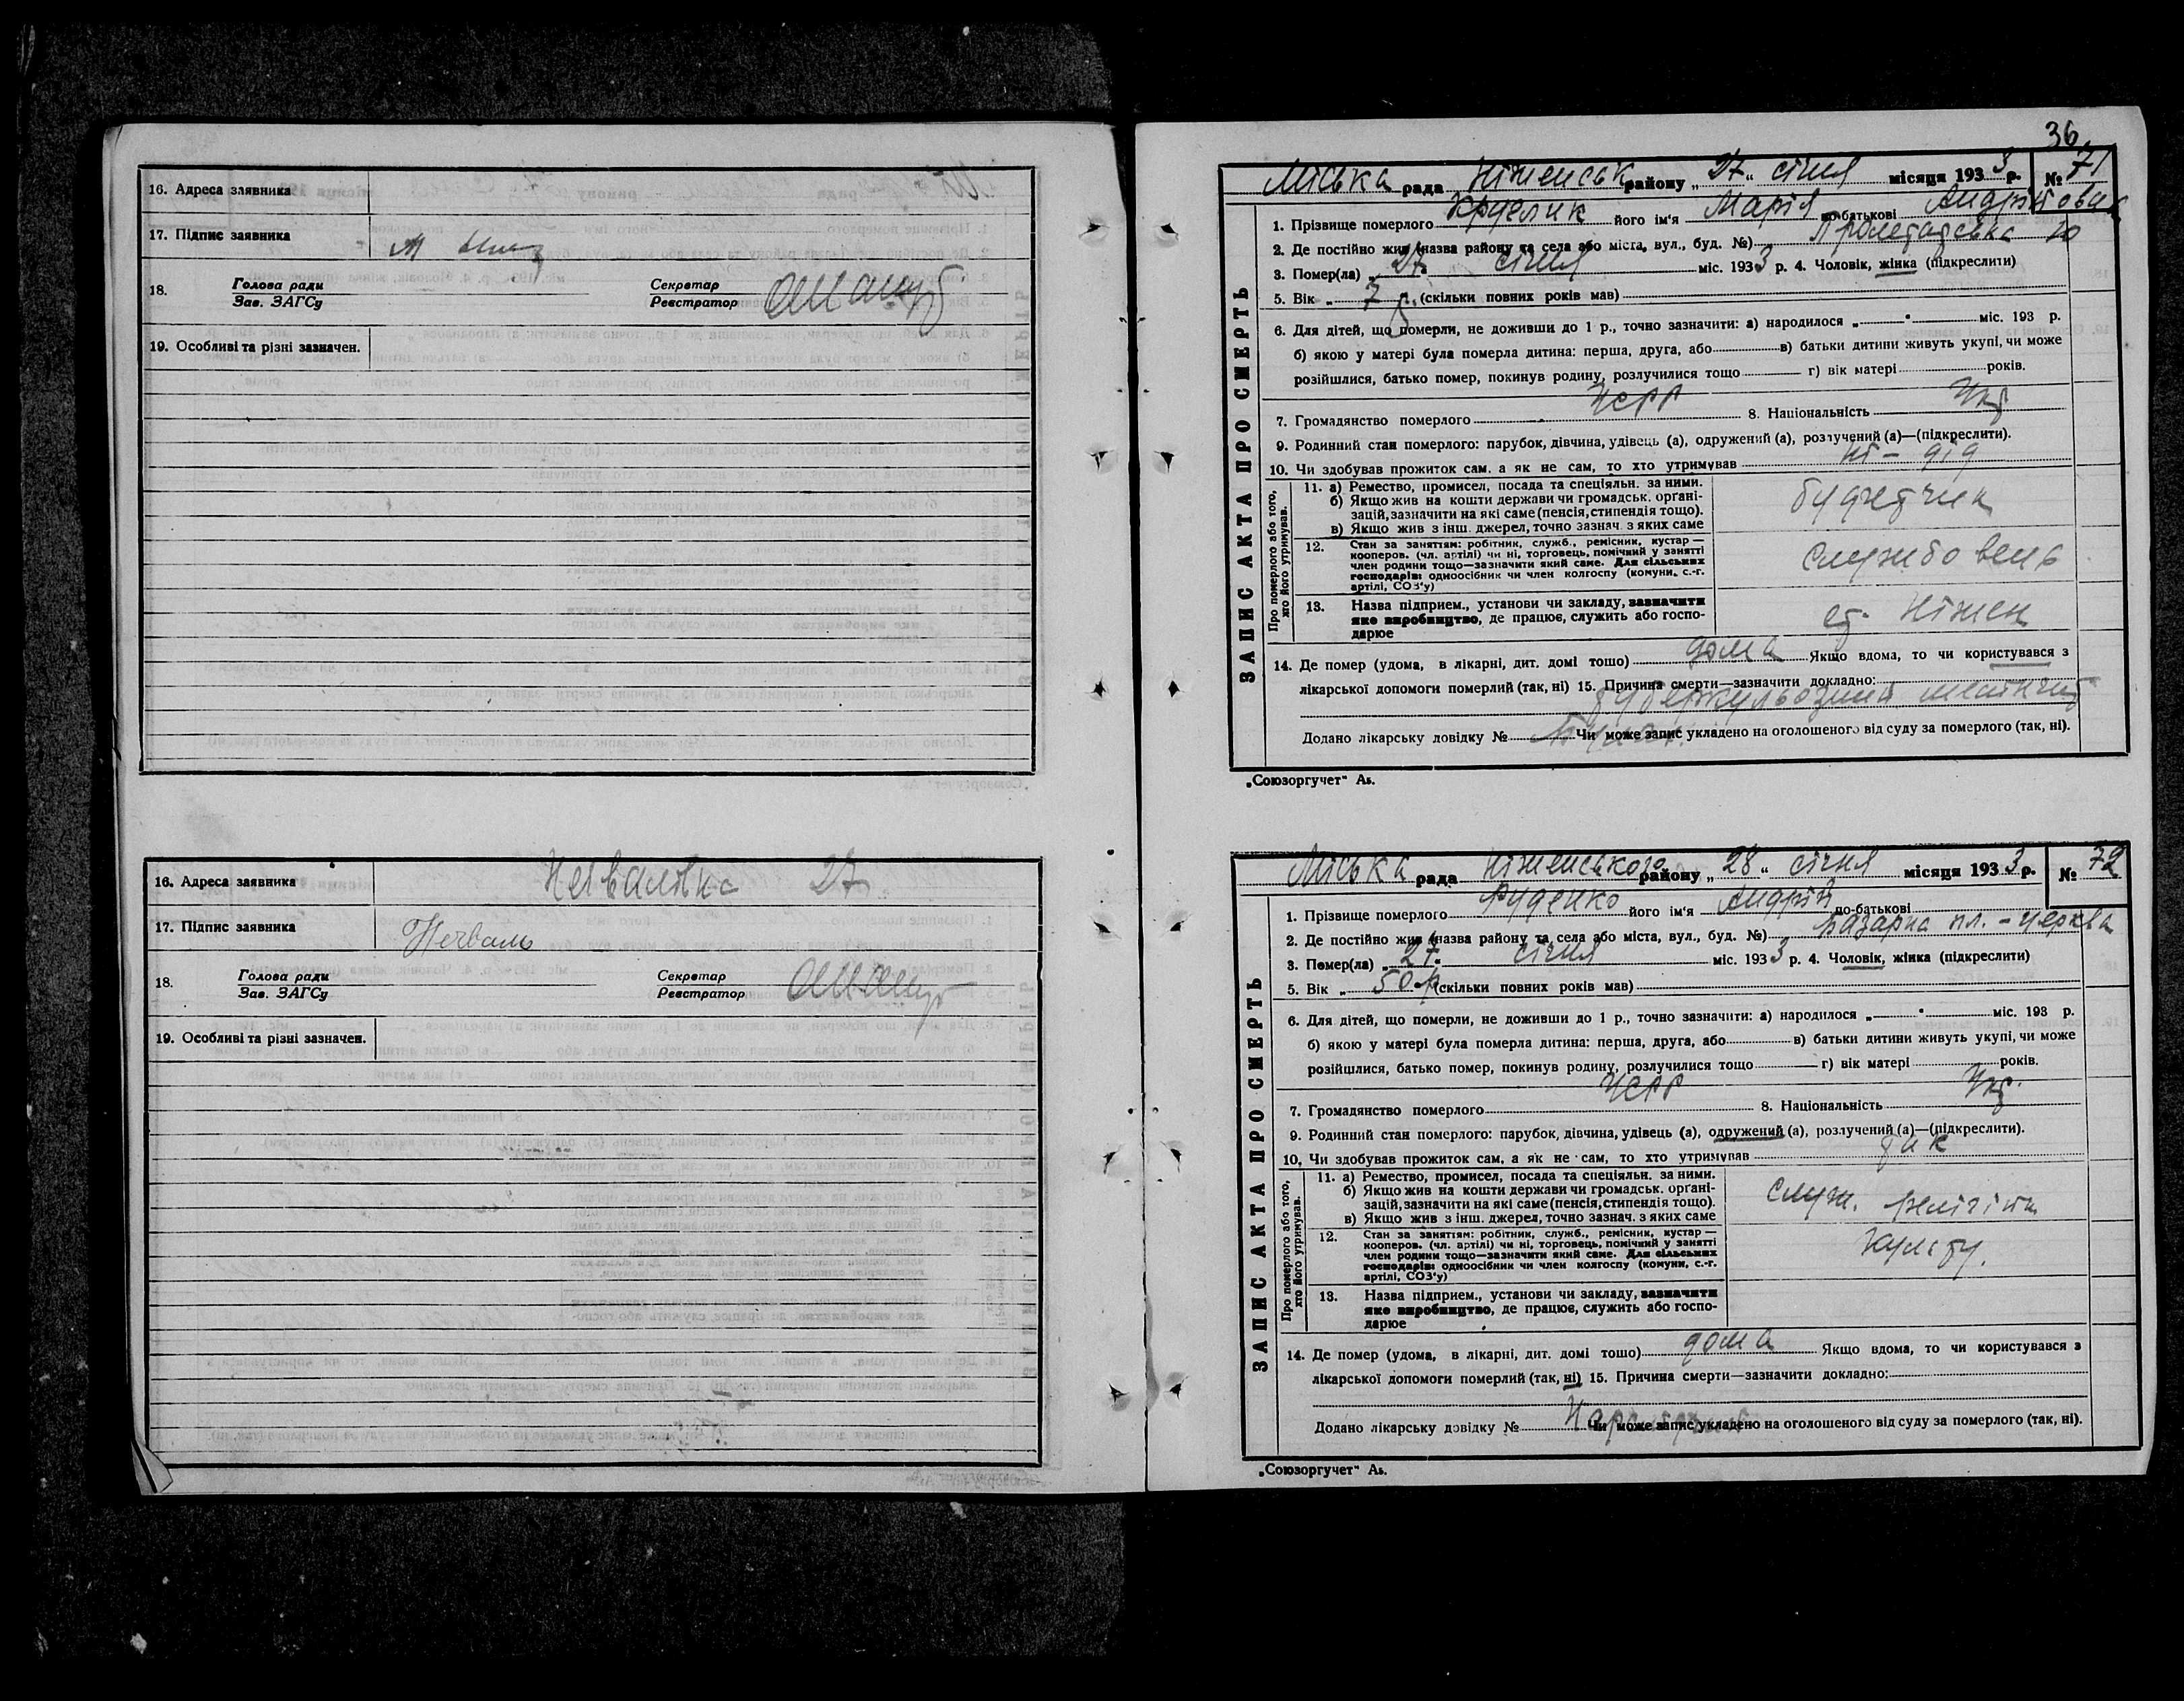 16. Адреса заявника
17. Підпис заявника
18. Голова ради Секретар
Зав. ЗАГСу Реєстратор
19. Особливі та різні зазначен.
16. Адреса заявника 27
17. Підпис заявника
18. Голова ради Секретар
Зав. ЗАГСу Реєстратор
19. Особливі та різні зазначен.
36
Міська рада Ніженськ району „27“ січня місяця 1933 р. № 71
ЗАПИС АКТА ПРО СМЕРТЬ
1. Прізвище померлого його ім'я Марія по-батькові
2. Де постійно жив (назва району та села або міста, вул., буд. №) Пролетарська 10
3. Помер(ла) „27“ січня міс. 1933 р. 4. Чоловік, жінка (підкреслити)
5. Вік „ 7 р. (скільки повних років мав)
6. Для дітей, що померли, не доживши до 1 р., точно зазначити: а) народилося „ “ міс. 193 р.
б) якою у матері була померла дитина: перша, друга, або в) батьки дитини живуть укупі, чи може
розійшлися, батько помер, покинув родину, розлучилися тощо г) вік матері років.
7. Громадянство померлого УСРР 8. Національність Укр
9. Родинний стан померлого: парубок, дівчина, удівець (а), одружений (а), розлучений (а)—(підкреслити).
10. Чи здобував прожиток сам, а як не сам, то хто утримував ні – дід
Про померлого або того, хто його утримував.
11. а) Ремество, промисел, посада та спеціяльн. за ними.
б) Якщо жив на кошти держави чи громадськ. органі-
зацій, зазначити на які саме (пенсія, стипендія тощо).
в) Якщо жив з інш. джерел, точно зазнач. з яких саме
12. Стан за заняттям: робітник, служб., ремісник, кустар—
кооперов. (чл. артілі) чи ні, торговець, помічний у занятті
член родини тощо—зазначити який саме. Для сільських
господарів: одноосібник чи член колгоспу (комуни, с.-г.
артілі, СОЗ'у)
службовець
13. Назва підприєм., установи чи закладу, зазначити
яке виробництво, де працює, служить або госпо-
дарює
ст. Ніжен
14. Де помер (удома, в лікарні, дит. домі тощо) дома Якщо вдома, то чи користувався з
лікарської допомоги померлий (так, ні) 15. Причина смерти—зазначити докладно:
туберкульозний менінгіт
Додано лікарську довідку № Чи може запис укладено на оголошеного від суду за померлого (так, ні).
„Союзоргучет“ Аь.
Міська рада Ніженського району „28“ січня місяця 1933 р. № 72
ЗАПИС АКТА ПРО СМЕРТЬ
1. Прізвище померлого Руденко його ім'я Андрій по-батькові
2. Де постійно жив (назва району та села або міста, вул., буд. №) Базарна пл. – церква
3. Помер(ла) „27“ січня міс. 1933 р. 4. Чоловік, жінка (підкреслити)
5. Вік „ 50 р. (скільки повних років мав)
6. Для дітей, що померли, не доживши до 1 р., точно зазначити: а) народилося „ “ міс. 193 р.
б) якою у матері була померла дитина: перша, друга, або в) батьки дитини живуть укупі, чи може
розійшлися, батько помер, покинув родину, розлучилися тощо г) вік матері років.
7. Громадянство померлого УСРР 8. Національність Укр.
9. Родинний стан померлого: парубок, дівчина, удівець (а), одружений (а), розлучений (а)—(підкреслити).
10. Чи здобував прожиток сам, а як не сам, то хто утримував так
Про померлого або того, хто його утримував.
11. а) Ремество, промисел, посада та спеціяльн. за ними.
б) Якщо жив на кошти держави чи громадськ. органі-
зацій, зазначити на які саме (пенсія, стипендія тощо).
в) Якщо жив з інш. джерел, точно зазнач. з яких саме
служ.
культу.
12. Стан за заняттям: робітник, служб., ремісник, кустар—
кооперов. (чл. артілі) чи ні, торговець, помічний у занятті
член родини тощо—зазначити який саме. Для сільських
господарів: одноосібник чи член колгоспу (комуни, с.-г.
артілі, СОЗ'у)
13. Назва підприєм., установи чи закладу, зазначити
яке виробництво, де працює, служить або госпо-
дарює
14. Де помер (удома, в лікарні, дит. домі тощо) дома Якщо вдома, то чи користувався з
лікарської допомоги померлий (так, ні) 15. Причина смерти—зазначити докладно:
Додано лікарську довідку № Чи може запис укладено на оголошеного від суду за померлого (так, ні).
„Союзоргучет“ Аь.